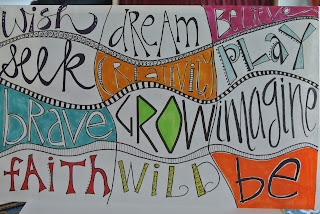 wish dream Believe
seek CREATIVITY PLAY
brave GROW imagine
FAITH WILD be